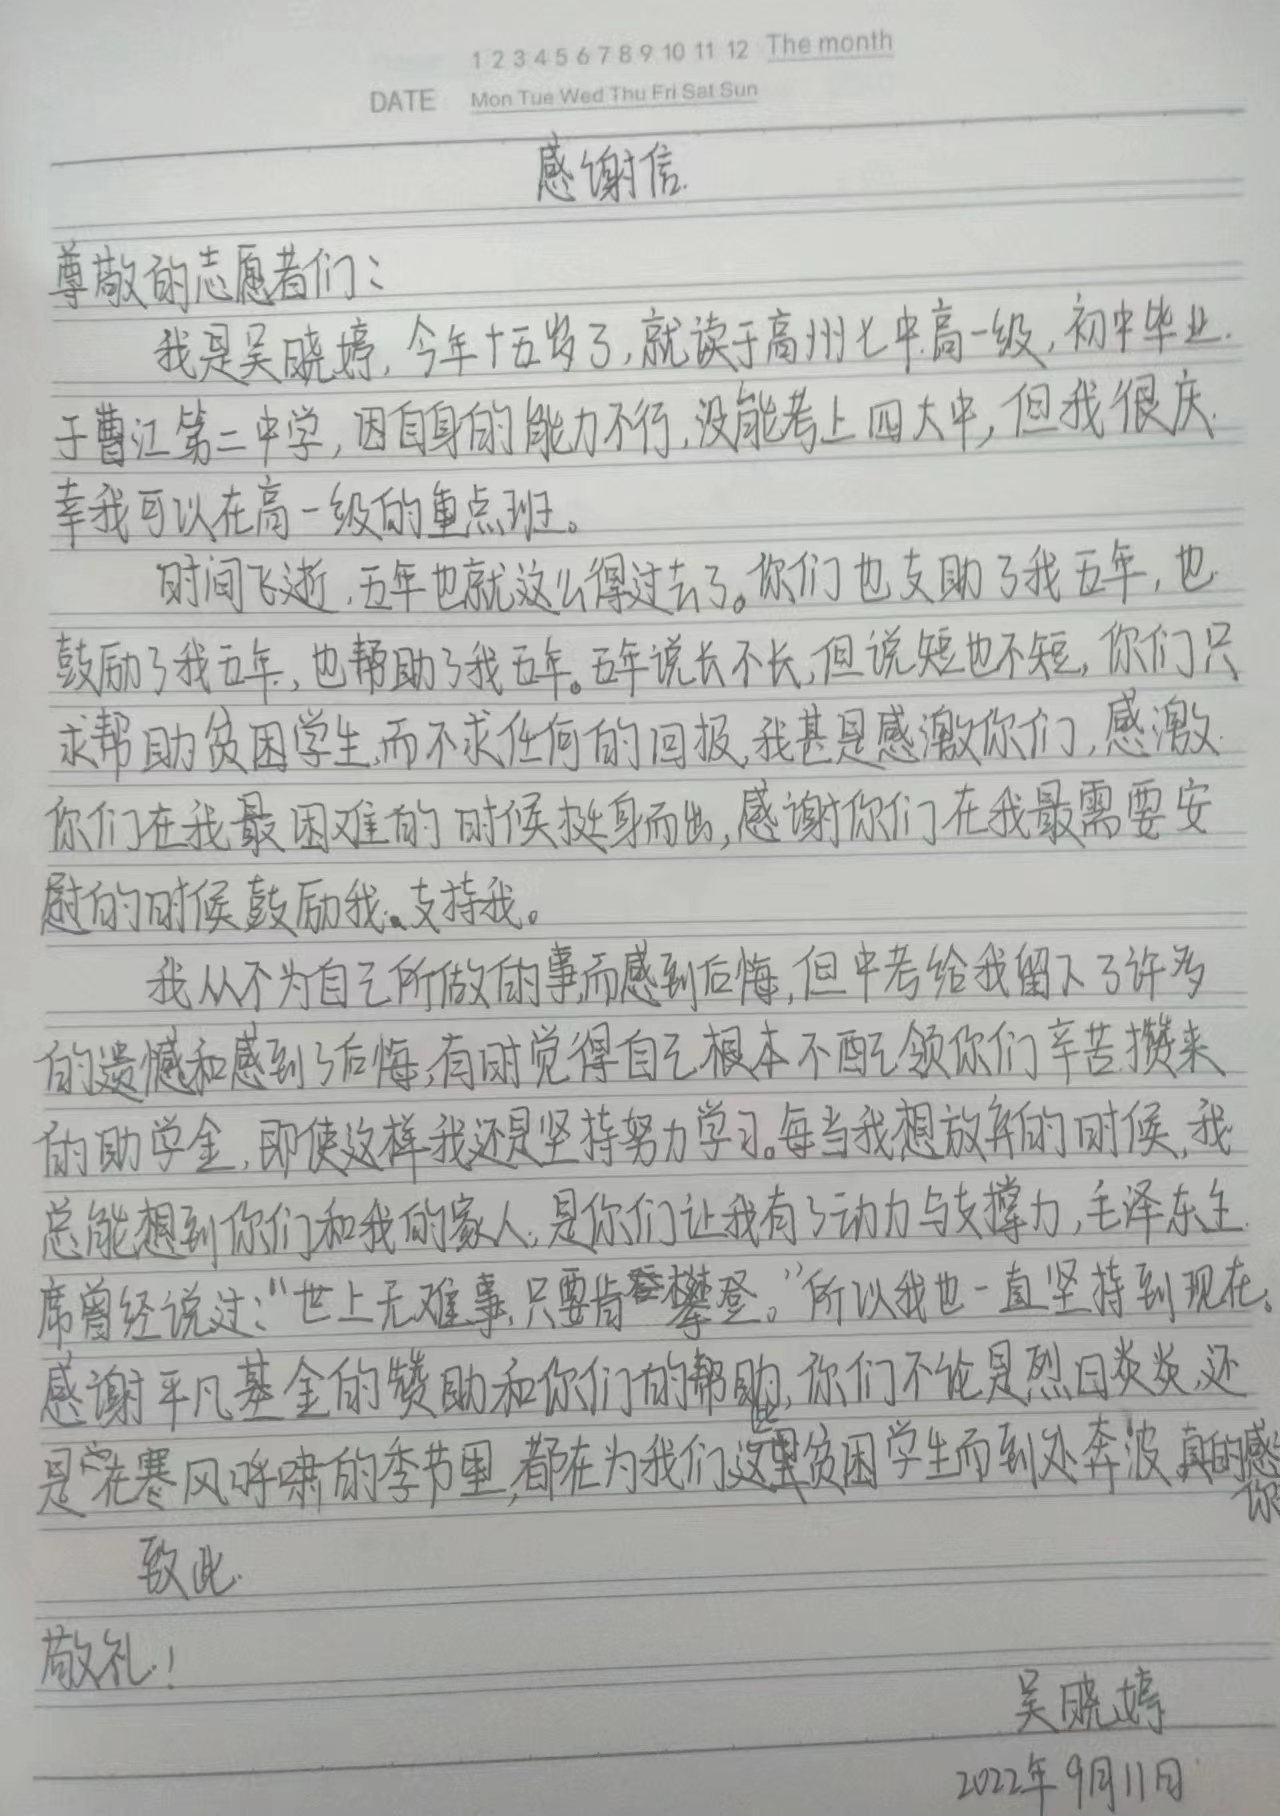 1 2 3 4 5 6 7 8 9 10 11 12 The month
DATE Mon Tue Wed Thu Fri Sat Sun
感谢信.
尊敬的志愿者们：
我是吴晓婷，今年十五岁了，就读于高州七中高一级，初中毕业.
于曹江第二中学，因自身的能力不行，没能考上四大中，但我很庆
幸我可以在高一级的重点班。
时间飞逝，五年也就这么得过去了。你们也支助了我五年，也
鼓励了我五年，也帮助了我五年。五年说长不长，但说短也不短，你们只
求帮助贫困学生，而不求任何的回报，我甚是感激你们，感激
你们在我最困难的时候挺身而出，感谢你们在我最需要安
慰的时候鼓励我、支持我。
我从不为自己所做的事而感到后悔，但中考给我留下了许多
的遗憾和感到了后悔，有时觉得自己根本不配领你们辛苦攒来
的助学金，即使这样我还是坚持努力学习。每当我想放弃的时候，我
总能想到你们和我的家人，是你们让我有了动力与支撑力，毛泽东主
席曾经说过："世上无难事，只要肯攀登。"所以我也一直坚持到现在。
感谢平凡基金的赞助和你们的帮助，你们不论是烈日炎炎，还
是在寒风呼啸的季节里，都在为我们这些贫困学生而到处奔波，真的感
你
致此.
敬礼！
吴晓婷
2022年9月11日